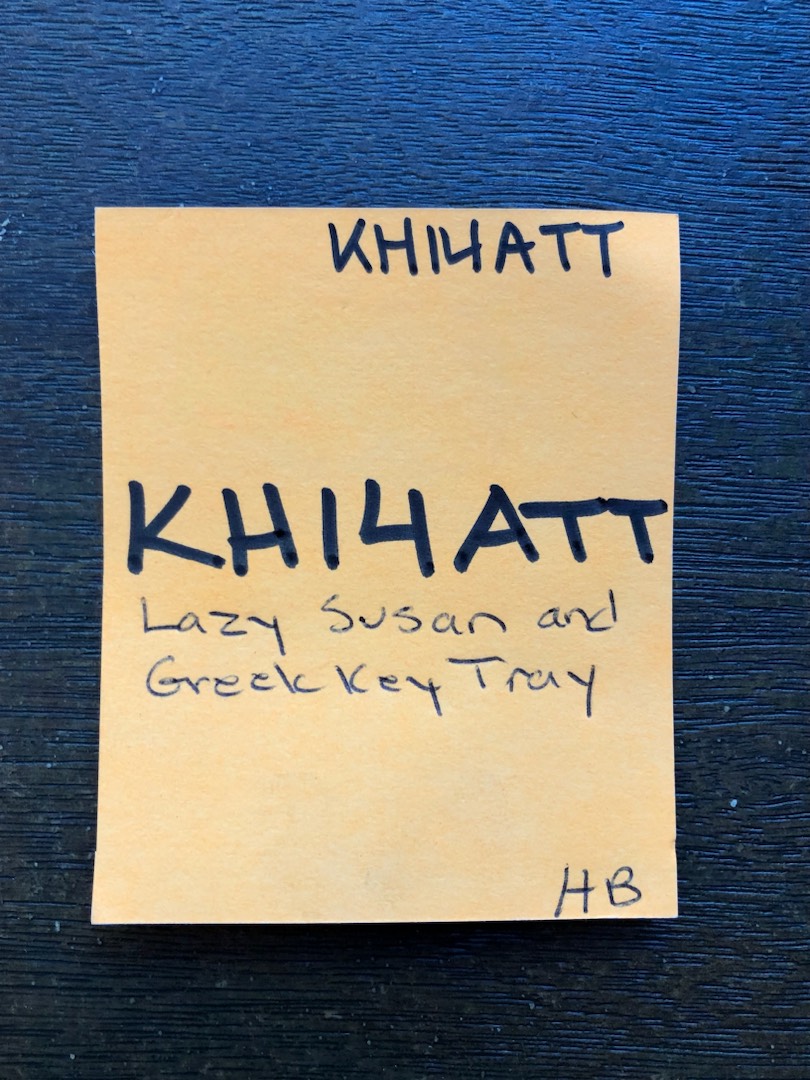 KH14ATT
KH14ATT
Lazy Susan and
Greek Key Tray
HB